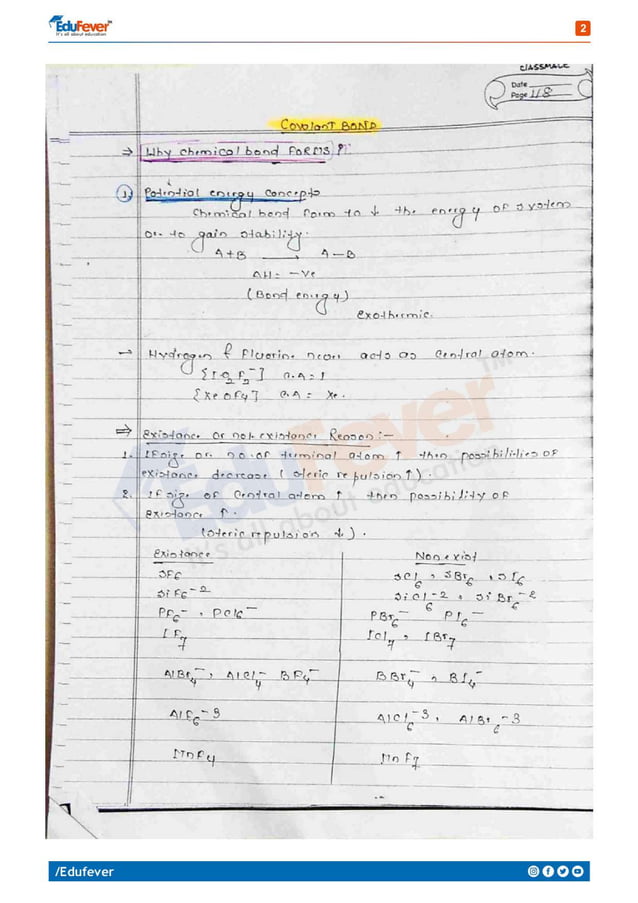 EduFever™
It's all about education
2
CLASSMATE
Date
Page 118
Covalant BOND
⇒ Why chemical bond FORMS ?
1. Potential energy concepts
Chemical bond form to ↓ the energy of system
or to gain stability.
A+B → A-B
ΔH = -Ve
(Bond energy)
Exothermic.
→ Hydrogen & Fluorine never acts as Central atom.
[IO₂F₂⁻] C.A = I
{XeOF4] C.A = Xe.
⇒ Existance or not existance Reason :-
1. If size or no. of terminal atom ↑ then possibilities of
existance decrease (steric repulsion ↑).
2. If size of Central atom ↑ then possibility of
Existance ↑.
(steric repulsion ↓).
Existance Non exist
SF6 SCl6, SBr6, SI6
SiF6⁻² SiCl6⁻², SiBr6⁻²
PF6⁻, PCl6⁻ PBr6⁻ PI6⁻
IF7 ICl7, IBr7
AlBr4⁻, AlCl4⁻ BF4⁻ BBr4⁻, BI4⁻
AlF6⁻³ AlCl6⁻³, AlBr6⁻³
MnF4 MnF7
EduFever™
It's all about education
/Edufever